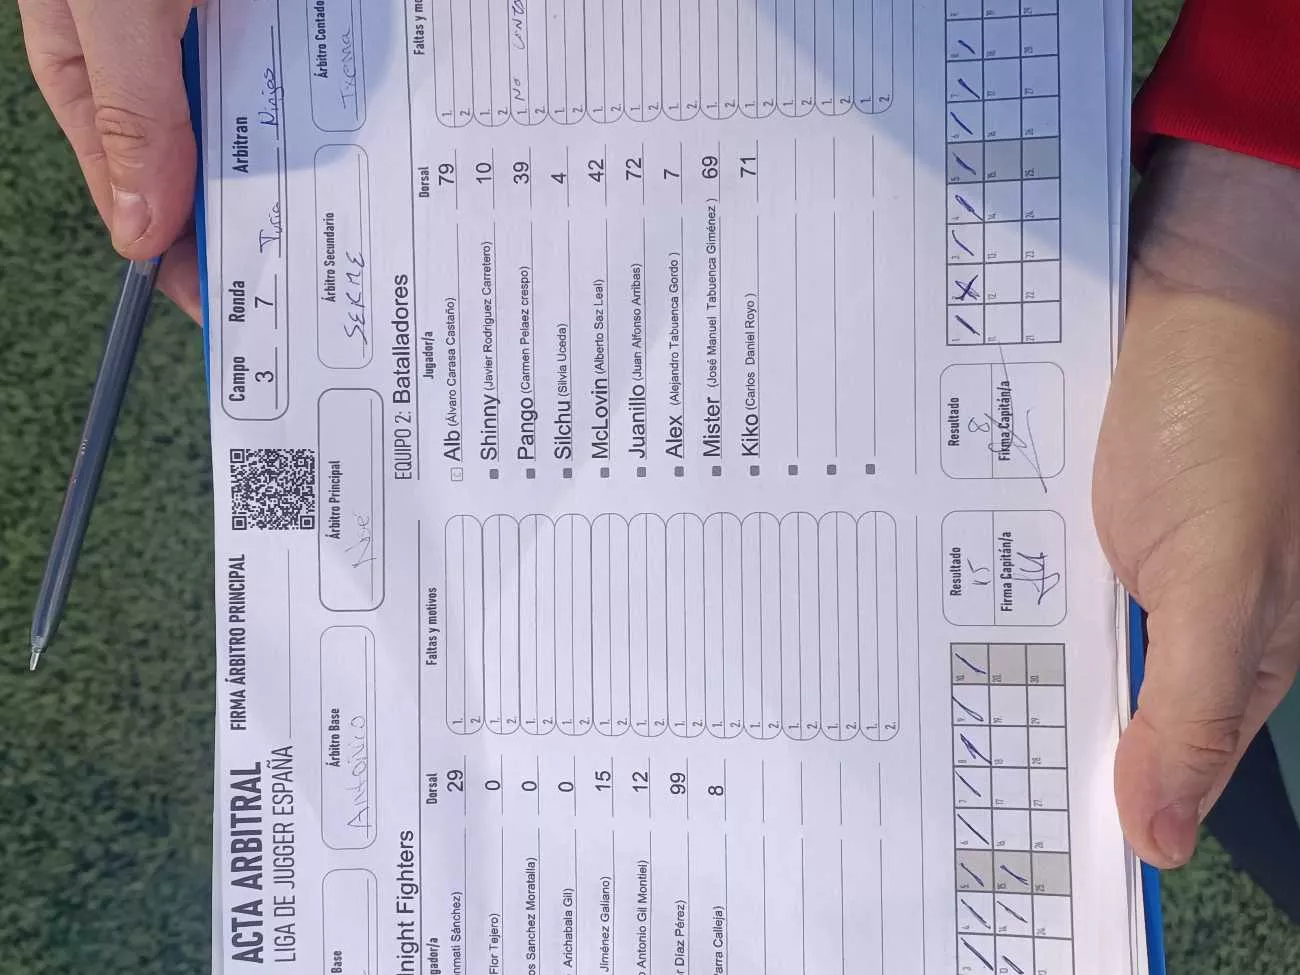 ACTA ARBITRAL
LIGA DE JUGGER ESPAÑA
FIRMA ÁRBITRO PRINCIPAL
Campo Ronda Arbitran
3 7 Turia Ninjas
Base
Árbitro Base
ANTOINIO
Árbitro Principal
Noe
Árbitro Secundario
SERME
Árbitro Contado
Txema
night Fighters
gador/a Dorsal Faltas y motivos
nmati Sánchez) 29 1.
2.
Flor Tejero) 0 1.
2.
os Sanchez Moratalla) 0 1.
2.
Arichabala Gil) 0 1.
2.
Jiménez Galiano) 15 1.
2.
o Antonio Gil Montiel) 12 1.
2.
r Díaz Pérez) 99 1.
2.
arra Calleja) 8 1.
2.
1.
2.
1.
2.
1.
2.
1.
2.
EQUIPO 2: Batalladores
Jugador/a Dorsal Faltas y mo
C Alb (Álvaro Carasa Castaño) 79 1.
2.
Shinny (Javier Rodriguez Carretero) 10 1.
2.
Pango (Carmen Pelaez crespo) 39 1. NO
2.
Silchu (Silvia Uceda) 4 1.
2.
McLovin (Alberto Saz Leal) 42 1.
2.
Juanillo (Juan Alfonso Arribas) 72 1.
2.
Alex (Alejandro Tabuenca Gordo ) 7 1.
2.
Mister (José Manuel Tabuenca Giménez ) 69 1.
2.
Kiko (Carlos Daniel Royo ) 71 1.
2.
1.
2.
1.
2.
1.
2.
3 4 5 6 7 8 9 10
13 14 15 16 17 18 19 20
24 25 26 27 28 29 30
Resultado
15
Firma Capitán/a
Resultado
8
Firma Capitán/a
1 2 3 4 5 6 7 8 9
11 12 13 14 15 16 17 18 19
21 22 23 24 25 26 27 28 29